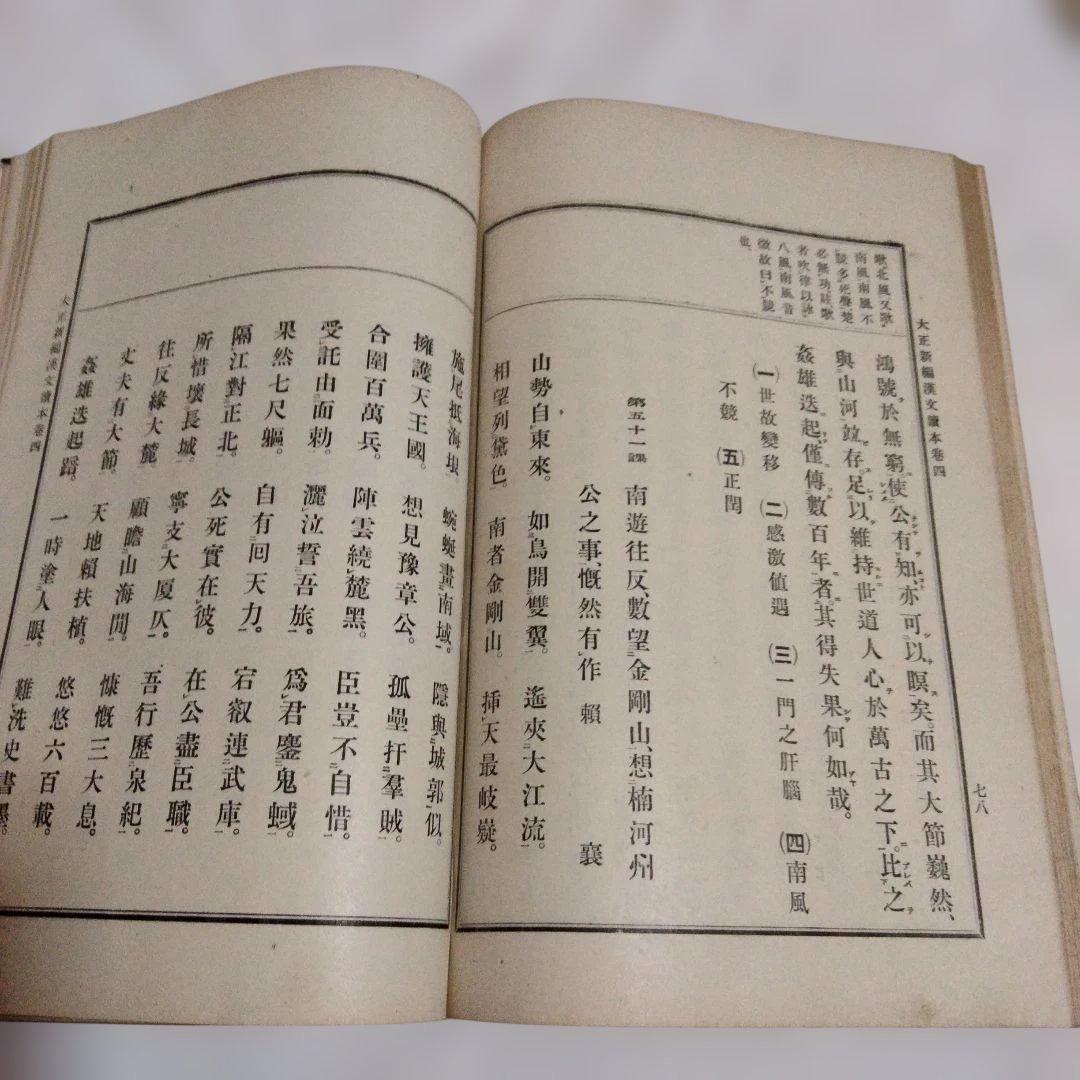 大正新編漢文讀本卷四
七八
歌北風又歌
南風南風不
競多死聲楚
必無功註歌
者吹律以詠
八風南風音
微故曰不競
也
鴻號於無窮使公有知亦可以瞑矣。而其大節巍然、
與山河竝存。足以維持世道人心於萬古之下。比之
姦雄迭起僅傳數百年者其得失果何如哉。
(一)世故變移 (二)感激値遇 (三)一門之肝腦 (四)南風
不競 (五)正閏
第五十一課 南遊往反、數望金剛山、想楠河州
公之事、慨然有作 賴襄
山勢自東來。 如鳥開雙翼。 遙夾大江流。
相望列黛色。 南者金剛山。 挿天最岐嶷。
施尾抵海垠 蜿蜒畫南域。 隱與城郭似。
擁護天王國。 想見豫章公。 孤壘扞羣賊。
合圍百萬兵。 陣雲繞麓黑。 臣豈不自惜。
受託由面勅。 灑泣誓吾旅。 爲君鏖鬼蜮。
果然七尺軀。 自有回天力。 宕叡連武庫。
隔江對正北。 公死實在彼。 在公盡臣職。
所惜壞長城。 寧支大厦仄。 吾行歷泉紀。
往反緣大麓 顧瞻山海間。 慷慨三大息。
丈夫有大節。 天地賴扶植。 悠悠六百載。
姦雄迭起踣。 一時塗人眼。 難洗史書墨。
大正新編漢文讀本卷四